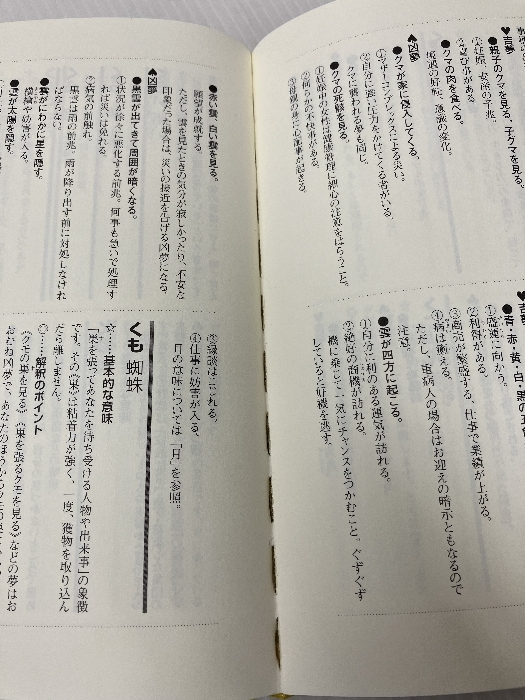 ♥吉夢
●親子のクマを見る。子グマを見る。
①妊娠、安産の予兆。
②喜び事がある。
●クマの肉を食べる。
●クマが家に侵入してくる。
①マザーコンプレックスによる災い。
②自分に悪い圧力をかけてくる者がいる。
クマに襲われる夢も同じ。
●クマの死骸を見る。
①妊娠中の女性は健康管理に細心の注意をはらうこと。
②何らかの不快事がある。
③母親の身に心配事が起きる。
♥吉夢
●青・赤・黄・白・黒の五色
①盛運に向かう。
②利得がある。
③商売が繁盛する。仕事で業績が上がる。
④病は癒える。
ただし、重病人の場合はお迎えの暗示ともなるので
注意。
●雲が四方に起こる。
①自分に利のある運気が訪れる。
②絶好の商機が訪れる。
機に乗じて一気にチャンスをつかむこと。ぐずぐず
していると好機を逃す。
●赤い雲、白い雲を見る。
願望が成就する。
ただし、雲を見たときの気分が寂しかったり、不安な
印象だった場合は、災いの接近を告げる凶夢になる。
♠凶夢
●黒雲が出てきて周囲が暗くなる。
①状況が徐々に悪化する前兆。何事も急いで処理す
れば災いは免れる。
②病気の前触れ。
黒雲は雨の前兆。雨が降り出す前に対処しなけれ
ばならない。
●雲がにわかに星を隠す。
横槍や妨害が入る。
●雲が太陽を隠す。
③縁談はこじれる。
④仕事に妨害が入る。
月の意味については「月」を参照。
くも 蜘蛛
☆……基本的な意味
「巣を張ってあなたを待ち受ける人物や出来事」の象徴
です。その《巣》は粘着力が強く、一度、獲物を取り込ん
だら離しません。
◎……解釈のポイント
《クモの巣を見る》《巣を張るクモを見る》などの夢はお